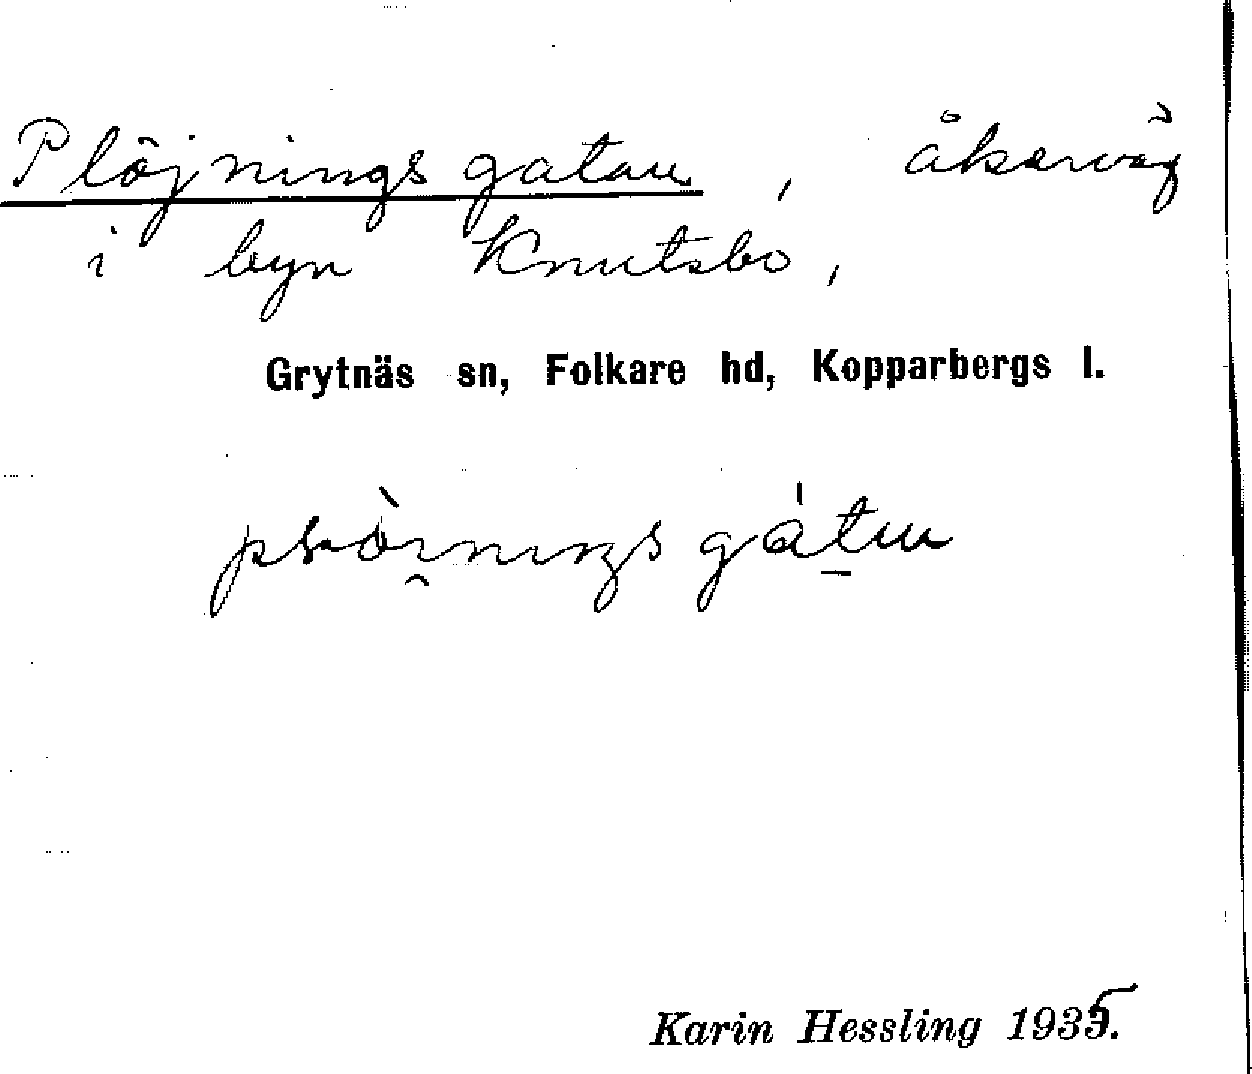 Plöjningsgatan, åkerväg
i byn Knutsbo,
Grytnäs sn, Folkare hd, Kopparbergs l.
Karin Hessling 1935.